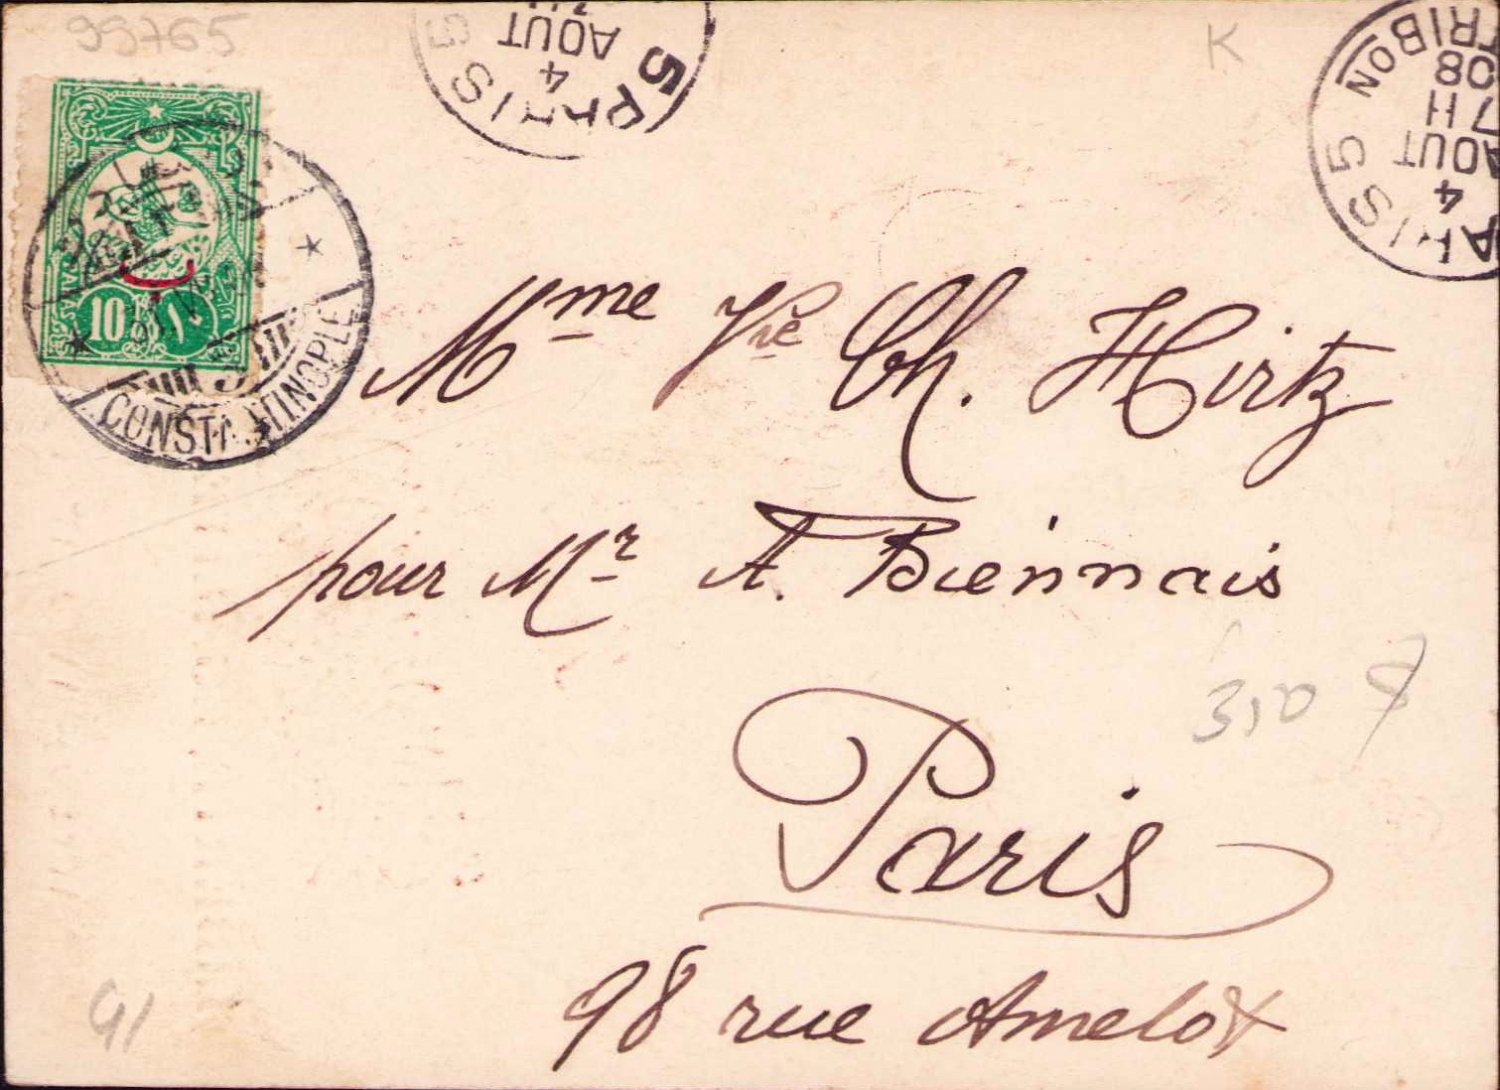 99765
K
PARIS 5
4
AOUT
PARIS 5 DISTRIBON
4
AOUT
7H
08
10 ١٠
CONSTANTINOPLE
3
Mme Vve Ch. Hirtz
pour Mr A. Biennais
310
Paris
98 rue Amelot
91